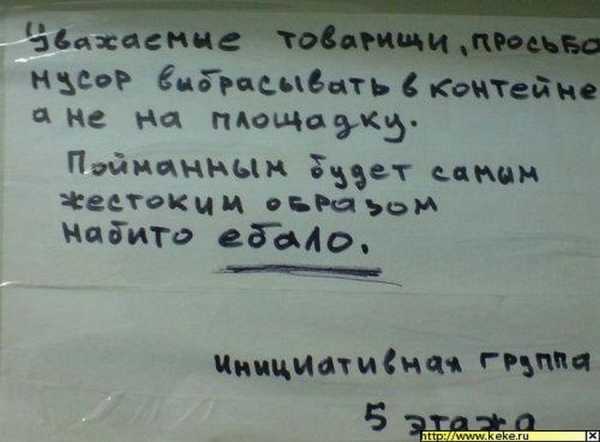 Уважаемые товарищи, просьба
мусор выбрасывать в контейне
а не на площадку.
Пойманным будет самым
жестоким образом
набито ебало.
инициативная группа
5 этажа
http://www.keke.ru